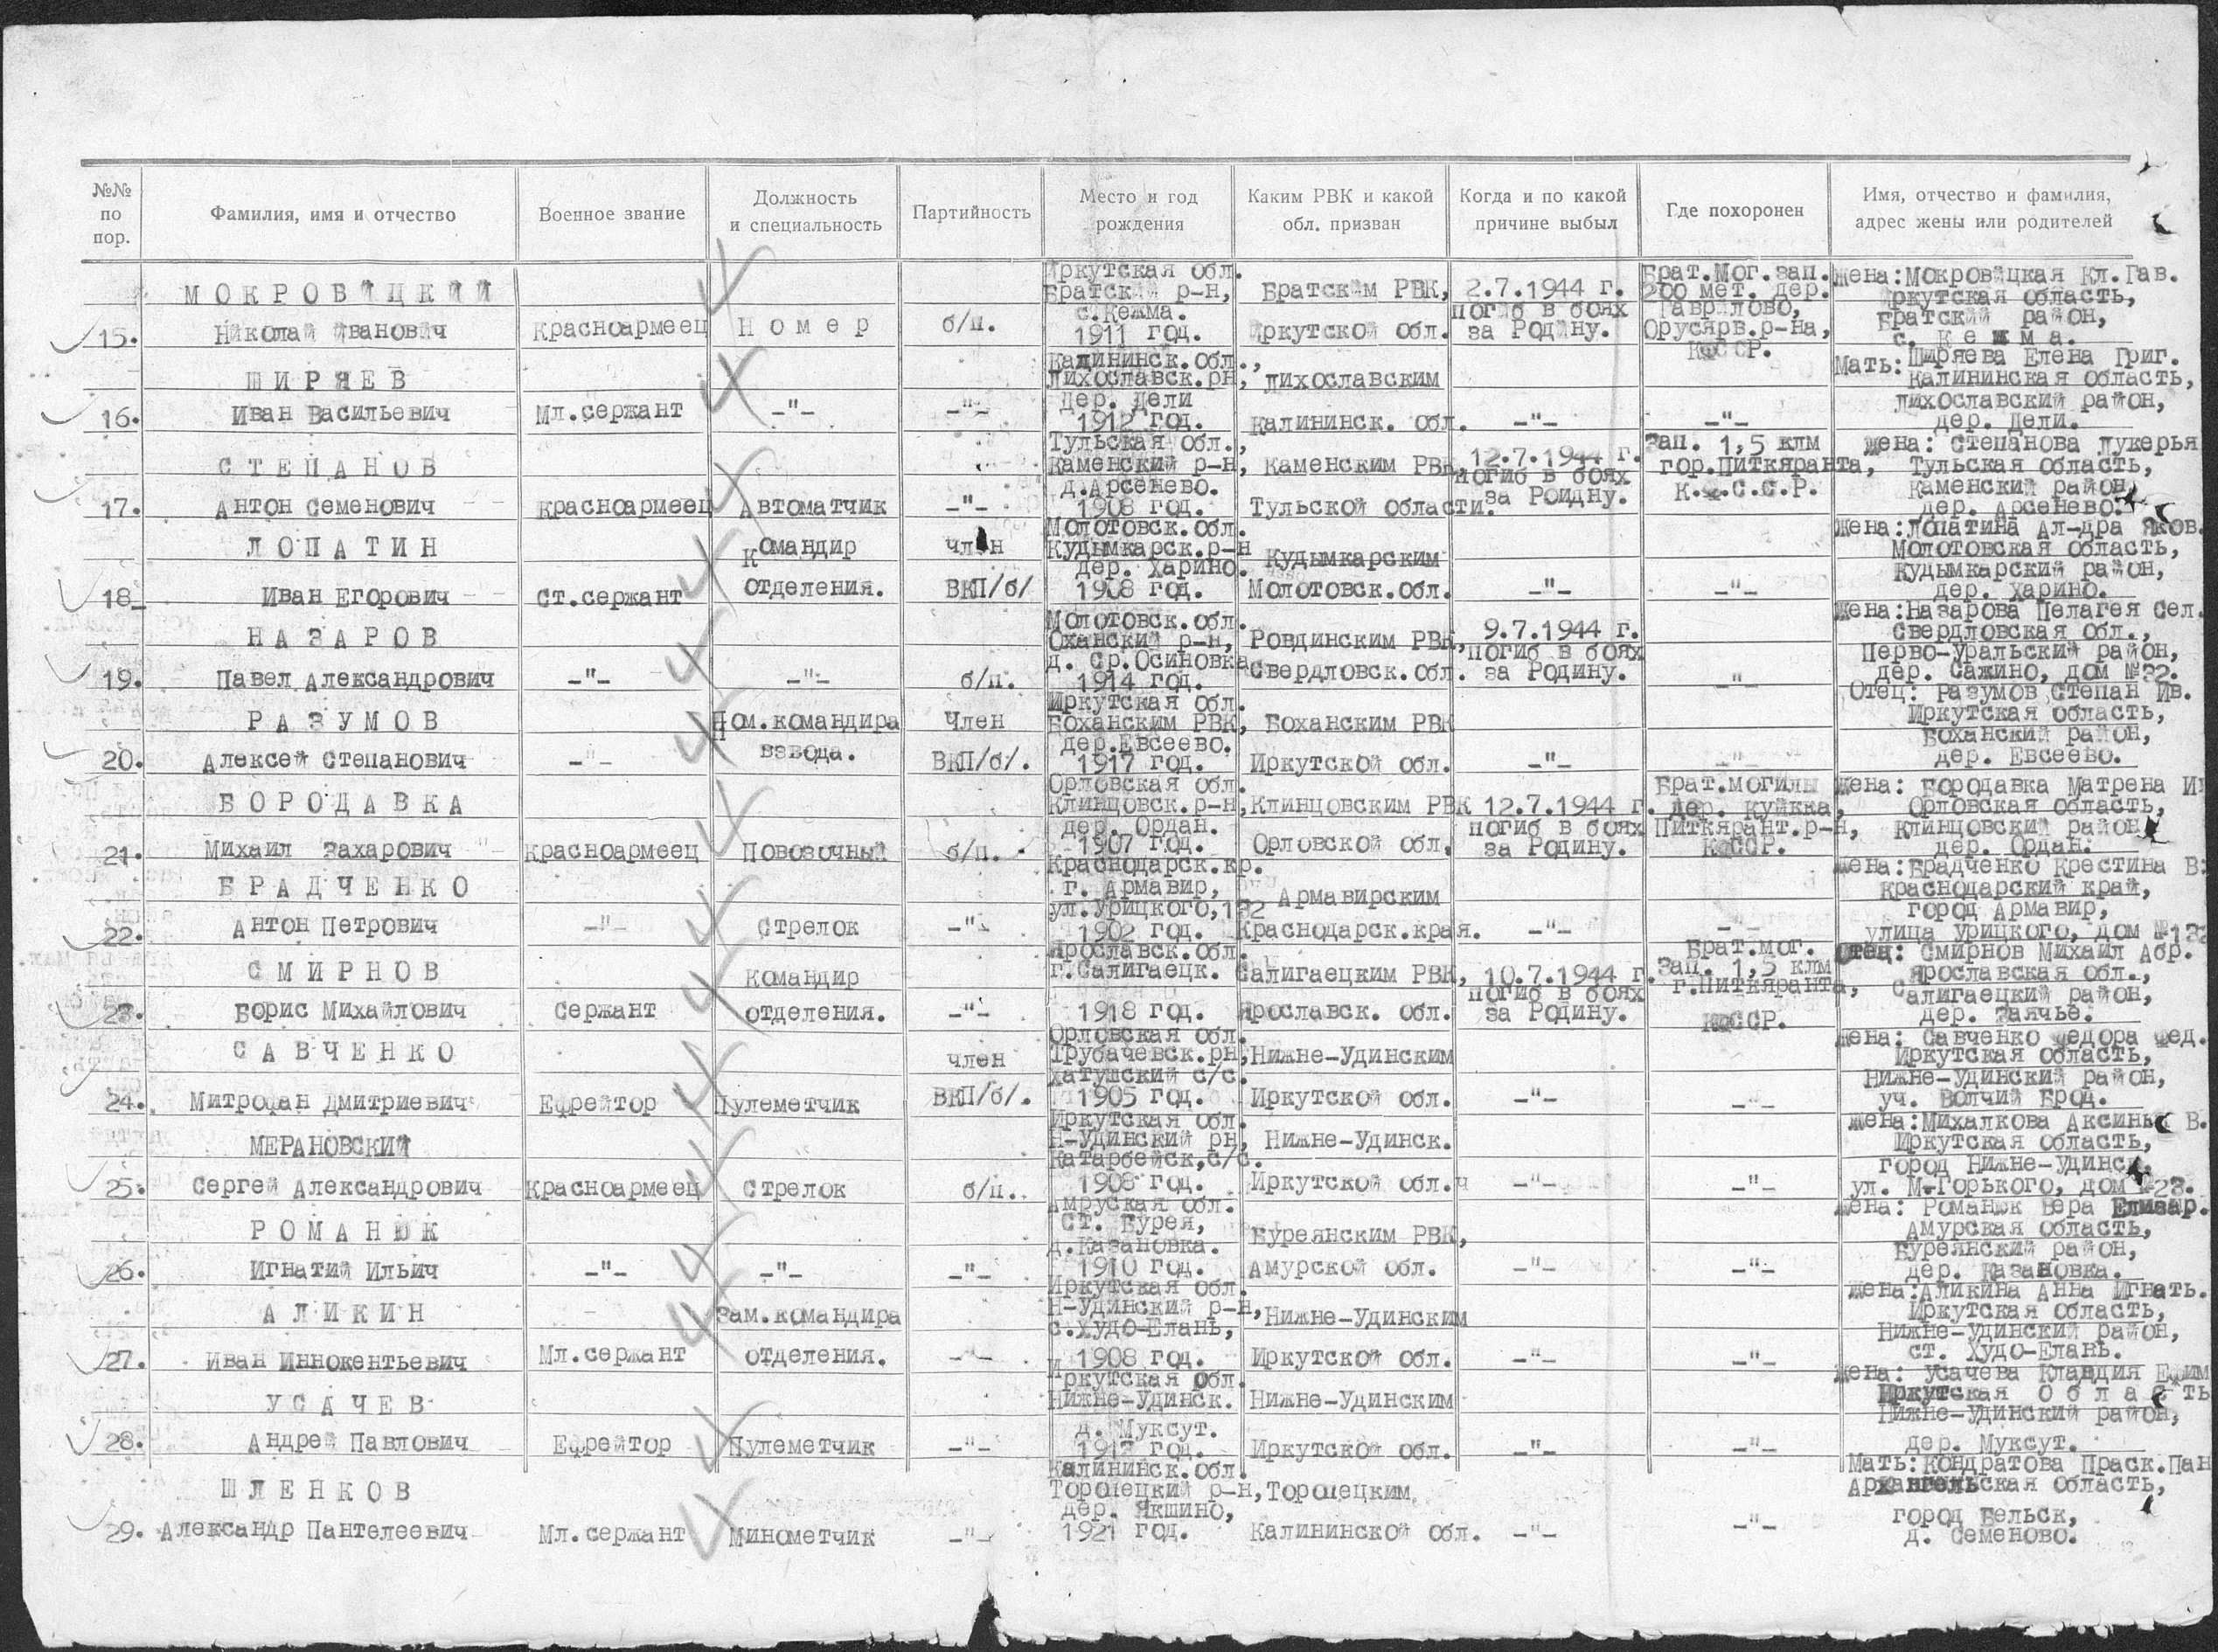 №№ по пор.
Фамилия, имя и отчество
Военное звание
Должность и специальность
Партийность
Место и год рождения
Каким РВК и какой обл. призван
Когда и по какой причине выбыл
Где похоронен
Имя, отчество и фамилия, адрес жены или родителей
15.
МОКРОВИЦКИЙ
Николай Иванович
Красноармеец
Номер
б/п.
Иркутская обл.
Братский р-н,
с.Кежма.
1911 год.
Братским РВК,
Иркутской обл.
2.7.1944 г.
погиб в боях
за Родину.
Брат.Мог.зап.
200 мет. дер.
Гаврилово,
Орусярв.р-на,
КФССР.
Жена:Мокровицкая Кл.Гав.
Иркутская область,
Братский район,
с. Кежма.
16.
ШИРЯЕВ
Иван Васильевич
Мл.сержант
-"-
-"-
Калининск.обл.,
Лихославск.рн,
дер. Дели
1912 год.
Лихославским
Калининск. обл.
-"-
-"-
Мать:Ширяева Елена Григ.
Калининская область,
Лихославский район,
дер. Дели.
17.
СТЕПАНОВ
Антон Семенович
Красноармеец
Автоматчик
-"-
Тульская обл.,
Каменский р-н,
д.Арсенево.
1908 год.
Каменским РВК,
Тульской области.
12.7.1944 г.
погиб в боях
за Роидну.
Зап. 1,5 клм
гор.Питкяранта,
К.Ф.С.С.Р.
Жена: Степанова Лукерья
Тульская область,
Каменский район,
дер. Арсенево.
18_
ЛОПАТИН
Иван Егорович
Ст.сержант
Командир
отделения.
член
ВКП/б/
Молотовск.обл.
Кудымкарск.р-н
дер. Харино.
1908 год.
Кудымкарским
Молотовск.обл.
-"-
-"-
Жена:Лопатина Ал-дра Яков.
Молотовская область,
Кудымкарский район,
дер. Харино.
19.
НАЗАРОВ
Павел Александрович
-"-
-"-
б/п.
Молотовск.обл.
Оханский р-н,
д. Ср.Осиновка
1914 год.
Ровдинским РВК,
Свердловск.обл.
9.7.1944 г.
погиб в боях
за Родину.
-"-
Жена:Назарова Пелагея Сел.
Свердловская обл.,
Перво-Уральский район,
дер. Сажино, дом №32.
20.
РАЗУМОВ
Алексей Степанович
-"-
Пом.командира
взвода.
Член
ВКП/б/.
Иркутская обл.
Боханским РВК,
дер.Евсеево.
1917 год.
Боханским РВК
Иркутской обл.
-"-
-"-
Отец: Разумов Степан Ив.
Иркутская область,
Боханский район,
дер. Евсеево.
21.
БОРОДАВКА
Михаил Захарович
Красноармеец
Повозочный
б/п.
Орловская обл.
Клинцовск.р-н,
дер. Ордан.
1907 год.
Клинцовским РВК
Орловской обл.
12.7.1944 г.
погиб в боях
за Родину.
Брат.могилы
дер. Куйкка,
Питкярант.р-н,
КФССР.
Жена: Бородавка Матрена
Орловская область,
Клинцовский район,
дер. Ордан.
22.
БРАДЧЕНКО
Антон Петрович
-"-
Стрелок
-"-
Краснодарск.кр.
г. Армавир,
ул.Урицкого,132
1902 год.
Армавирским
Краснодарск.края.
-"-
-"-
Жена:Брадченко Крестина В.
Краснодарский край,
город Армавир,
улица Урицкого, дом №132
23.
СМИРНОВ
Борис Михайлович
Сержант
Командир
отделения.
-"-
Ярославск.обл.
г.Салигаецк.
1918 год.
Салигаецким РВК,
Ярославск. обл.
10.7.1944 г.
погиб в боях
за Родину.
Брат.мог.
Зап. 1,5 клм
г.Питкяранта,
КФССР.
Отец: Смирнов Михаил Абр.
Ярославская обл.,
Салигаецкий район,
дер. Заячье.
24.
САВЧЕНКО
Митрофан Дмитриевич
Ефрейтор
Пулеметчик
член
ВКП/б/.
Орловская обл.
Трубачевск.рн,
Хатушский с/с.
1905 год.
Нижне-Удинским
Иркутской обл.
-"-
-"-
Жена: Савченко Федора Фед.
Иркутская область,
Нижне-Удинский район,
уч. Волчий Брод.
25.
МЕРАНОВСКИЙ
Сергей Александрович
Красноармеец
Стрелок
б/п..
Иркутская обл.
Н-Удинский рн,
Катарбейск,с/с.
1908 год.
Нижне-Удинск.
Иркутской обл.
-"-
-"-
Жена:Михалкова Аксинья В.
Иркутская область,
город Нижне-Удинск,
ул. М-Горького, дом №23.
26.
РОМАНЮК
Игнатий Ильич
-"-
-"-
-"-
Амруская обл.
Ст. Бурея,
д.Казановка.
1910 год.
Буреянским РВК,
Амурской обл.
-"-
-"-
Жена: Романюк Вера Елизар.
Амурская область,
Буреянский район,
дер. Казановка.
27.
АЛИКИН
Иван Иннокентьевич
Мл.сержант
Зам.командира
отделения.
-"-
Иркутская обл.
Н-Удинский р-н,
с.Худо-Елань,
1908 год.
Нижне-Удинским
Иркутской обл.
-"-
-"-
Жена:Аликина Анна Игнать.
Иркутская область,
Нижне-Удинский район,
ст. Худо-Елань.
28.
УСАЧЕВ
Андрей Павлович
Ефрейтор
Пулеметчик
-"-
Иркутская обл.
Нижне-Удинск.
д. Муксут.
1917 год.
Нижне-Удинским
Иркутской обл.
-"-
-"-
Жена: Усачева Клавдия Ефим
Иркутская область
Нижне-Удинский район,
дер. Муксут.
29.
ШЛЕНКОВ
Александр Пантелеевич
Мл.сержант
Минометчик
-"-
Калининск.обл.
Торопецкий р-н,
дер. Якшино,
1921 год.
Торопецким
Калининской обл.
-"-
-"-
Мать:Кондратова Праск.Пан
Архангельская область,
город Вельск,
д. Семеново.